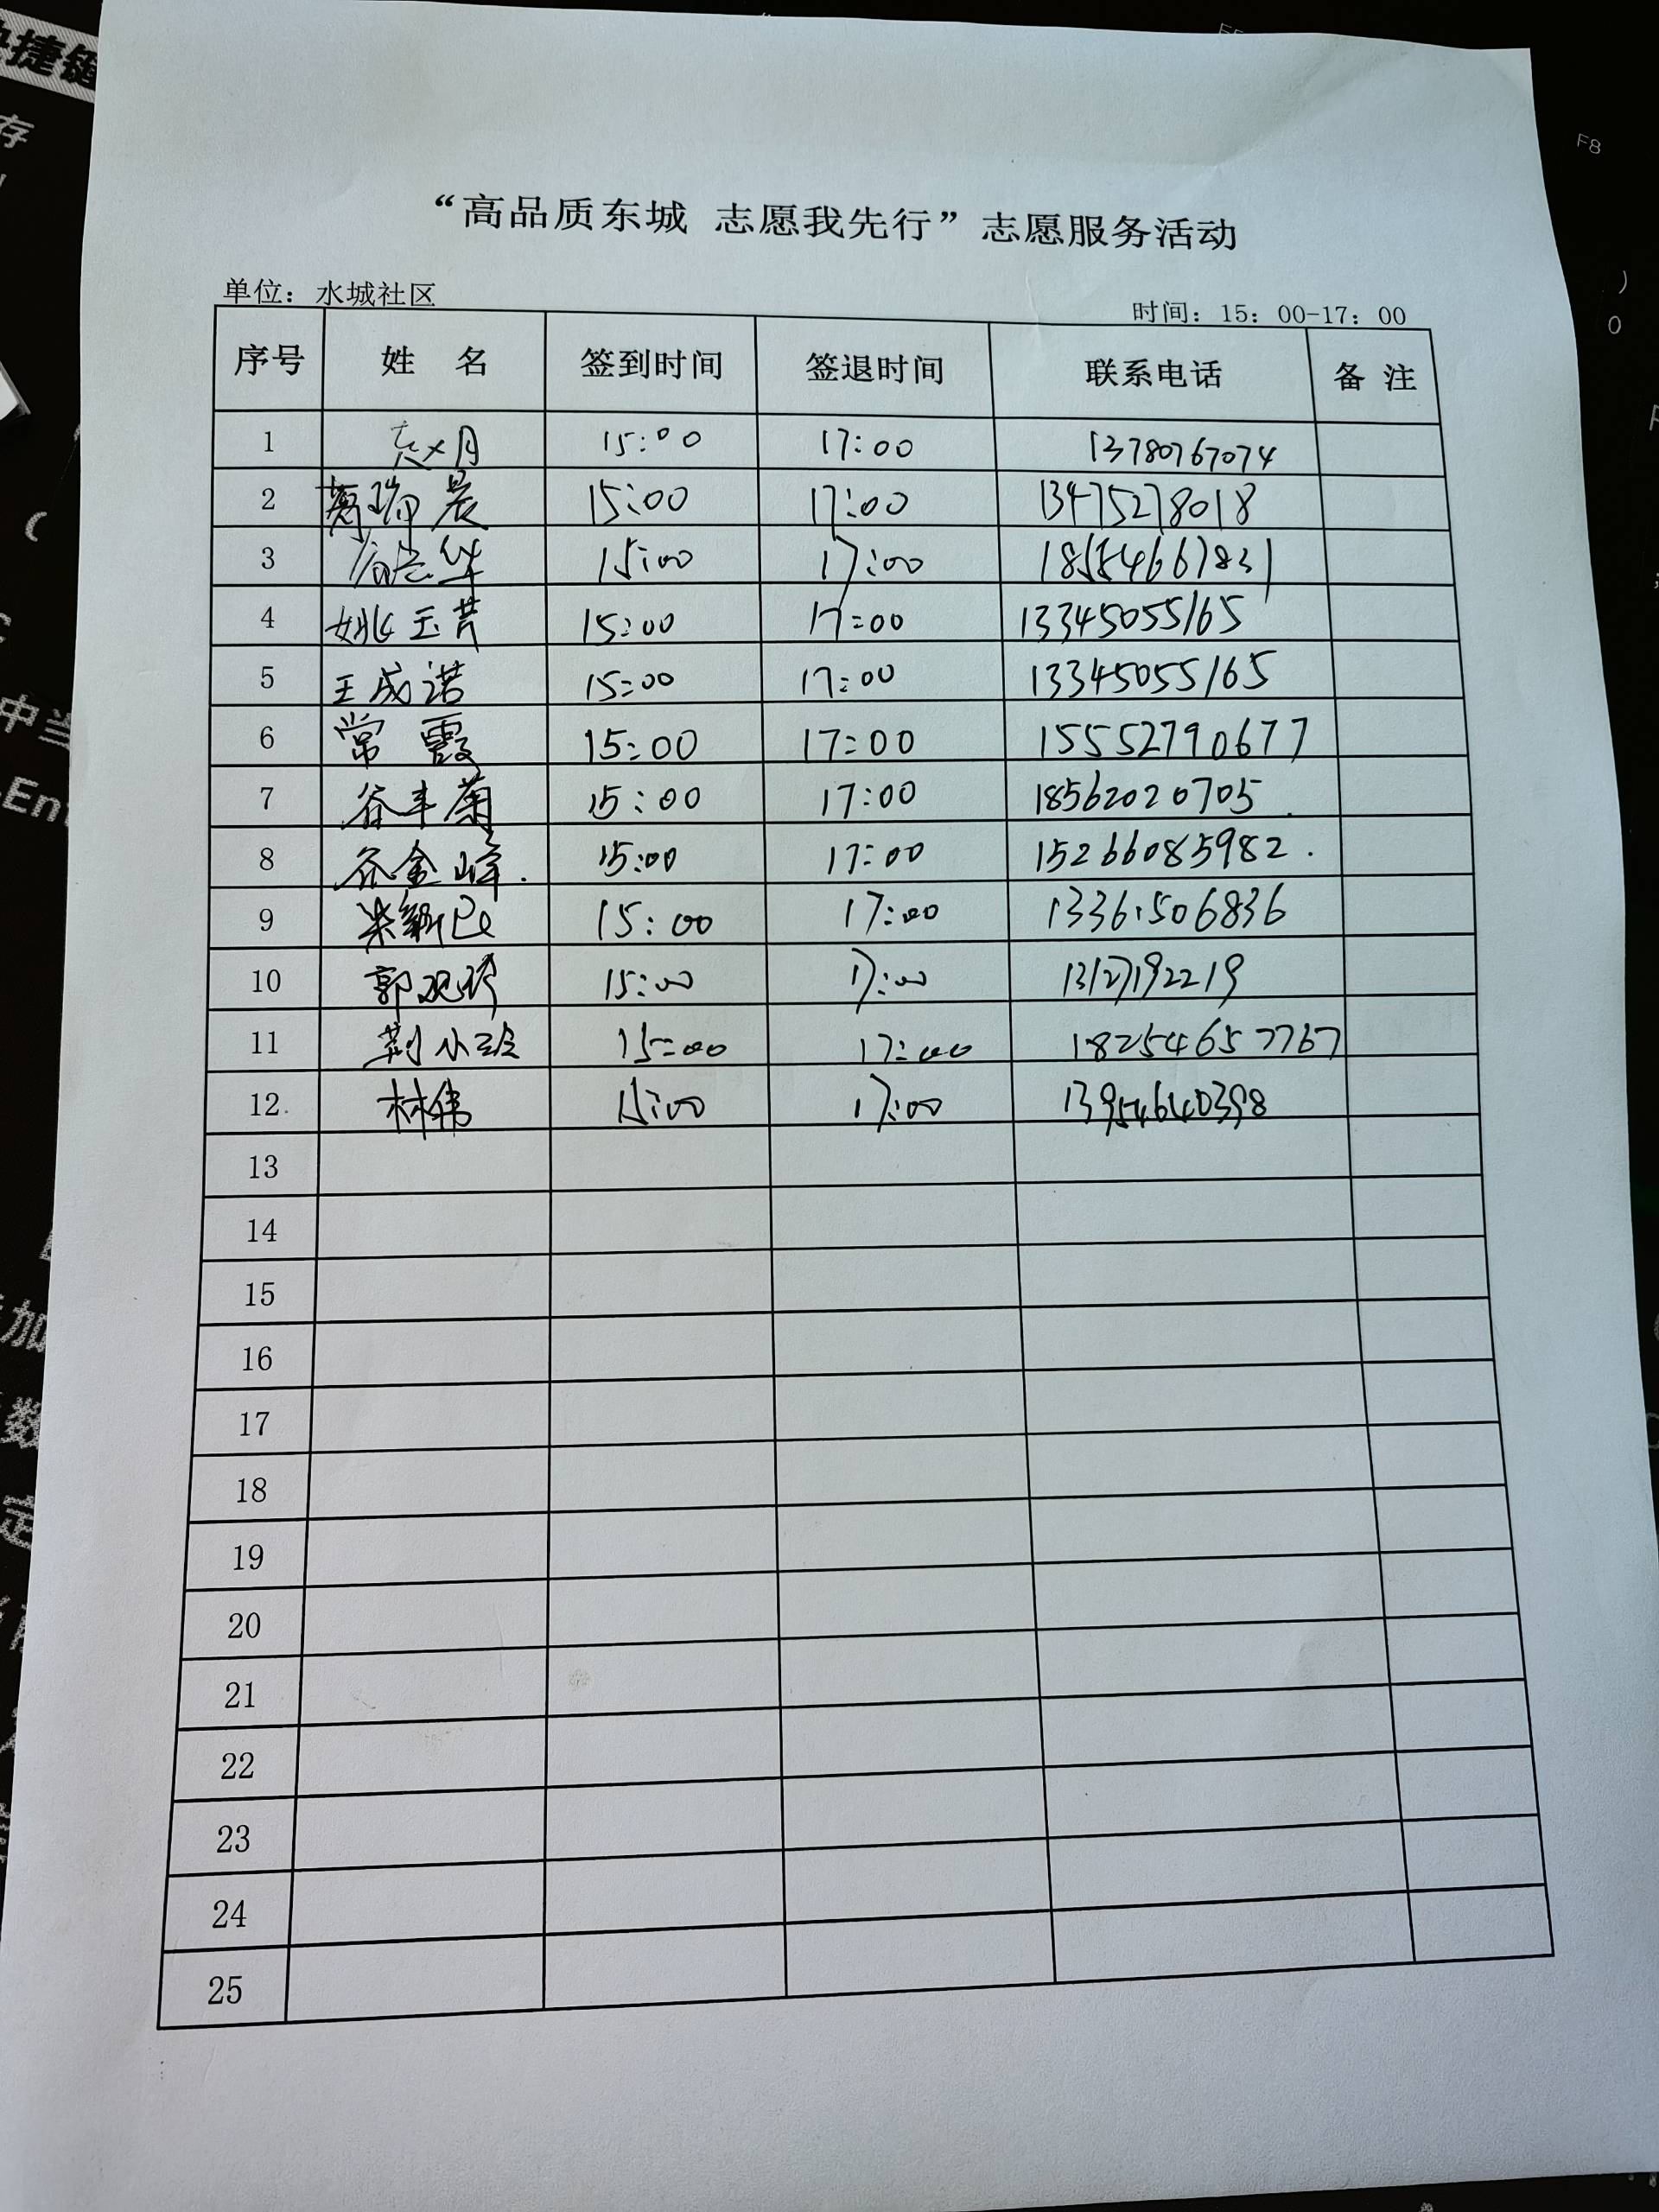 快捷键
存
中当
Ent
加
数
定
F8
“高品质东城 志愿我先行”志愿服务活动
单位：水城社区 时间：15：00-17：00
序号 姓 名 签到时间 签退时间 联系电话 备 注
1 15:00 17:00 13780767074
2 15:00 17:00 13475278018
3 15:00 17:00
4 姚玉芹 15:00 17:00 13345055165
5 王成诺 15:00 17:00 13345055165
6 常霞 15:00 17:00 15552790677
7 谷丰菊 15:00 17:00 18562020705.
8 谷金峰. 15:00 17:00 15266085982.
9 15:00 17:00 13361506836
10 郭 15:00 17:00
11 荆小玲 15:00 17:00 18254657767
12. 林伟 15:00 17:00 13954640398
13
14
15
16
17
18
19
20
21
22
23
24
25